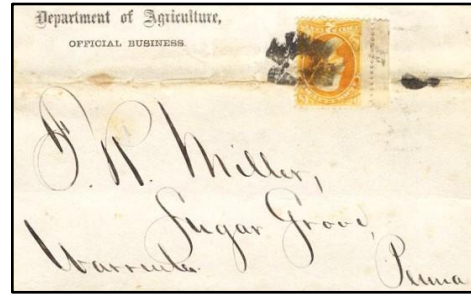 Department of Agriculture,
OFFICIAL BUSINESS.
Miller,
Sugar Grove,
Warren Co.
Penna